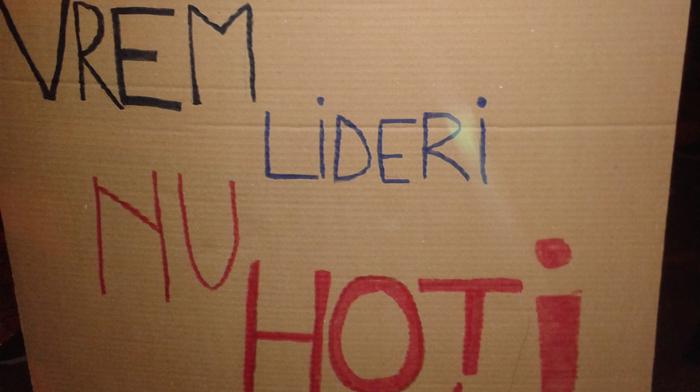 VREM
LİDERİ
NU
HOȚİ